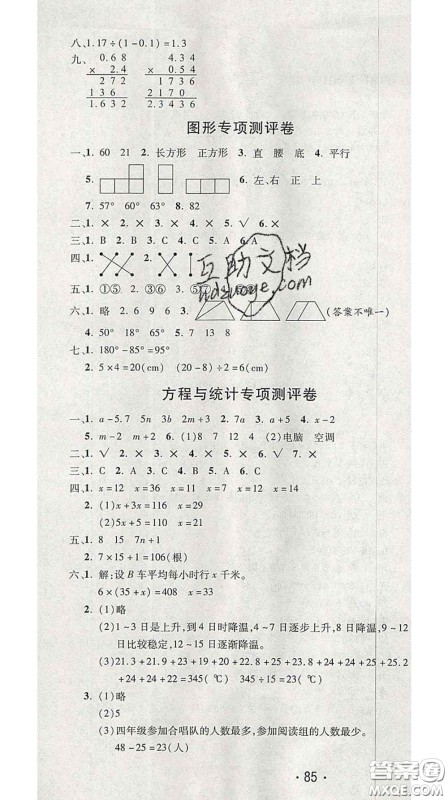 八、1. 17÷(1－0.1)=1.3
九、 0.68 4.34
× 2.4 × 0.54
272 1736
136 2170
1.632 2.3436
图形专项测评卷
一、1. 60 21 2. 长方形 正方形 3. 直 腰 底 4. 平行
5. 6. 左、右 正 上
7. 57° 60° 63° 8. 82
二、1. × 2. × 3. × 4. × 5. √ 6. ×
三、1. B 2. B 3. A 4. C 5. A 6. A
四、1. 2.
五、1. ①⑤ 2. ②③⑥ 3.
六、1. 略 2. 6 9 6 3. (答案不唯一)
4. 50° 18° 65° 5. 8 6. 30°
七、1. 180°－85°=95°
2. 5×4=20(cm) (20－8)÷2=6(cm)
方程与统计专项测评卷
一、1. a－5.7 5n 3b 2m+3 2. 7a 3. a+5 4. x－2
5. m－2 m+2 6. (1)8 7 12 4 (2)电脑 空调
二、1. √ 2. × 3. × 4. × 5. × 6. √ 7. ×
三、1. C 2. A 3. C 4. A 5. A 6. C
四、1. x=12 x=36 x=11 x=7 x=12 x=14
2. (1)x+3x=116 x=29
(2)5x+5=111 x=21.2
五、1. 8 15 7n+1
2. 7×15+1=106(根)
六、1. 解:设 B 车平均每小时行 x 千米。
6×(35+x)=408 x=33
2. (1)略
(2)1～3 日是上升,到 4 日时降温,4～7 日逐步上升,9～12
日比较稳定,12～15 日逐渐降温。
(3)21.3+21.8+23+19+20+21.8+23+24+25+24+25.2
+24+24+24+25=345(℃) 345÷15=23(℃)
3. (1)略
(2)5
(3)四年级参加合唱队的人数最多,参加阅读组的人数最少。
48－25=23(人)
· 85 ·
互助文档
hdzuoye.com
答案圈
MXQE.COM